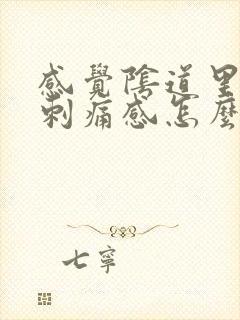 感覺陰道里
刺痛感怎麼
七寧